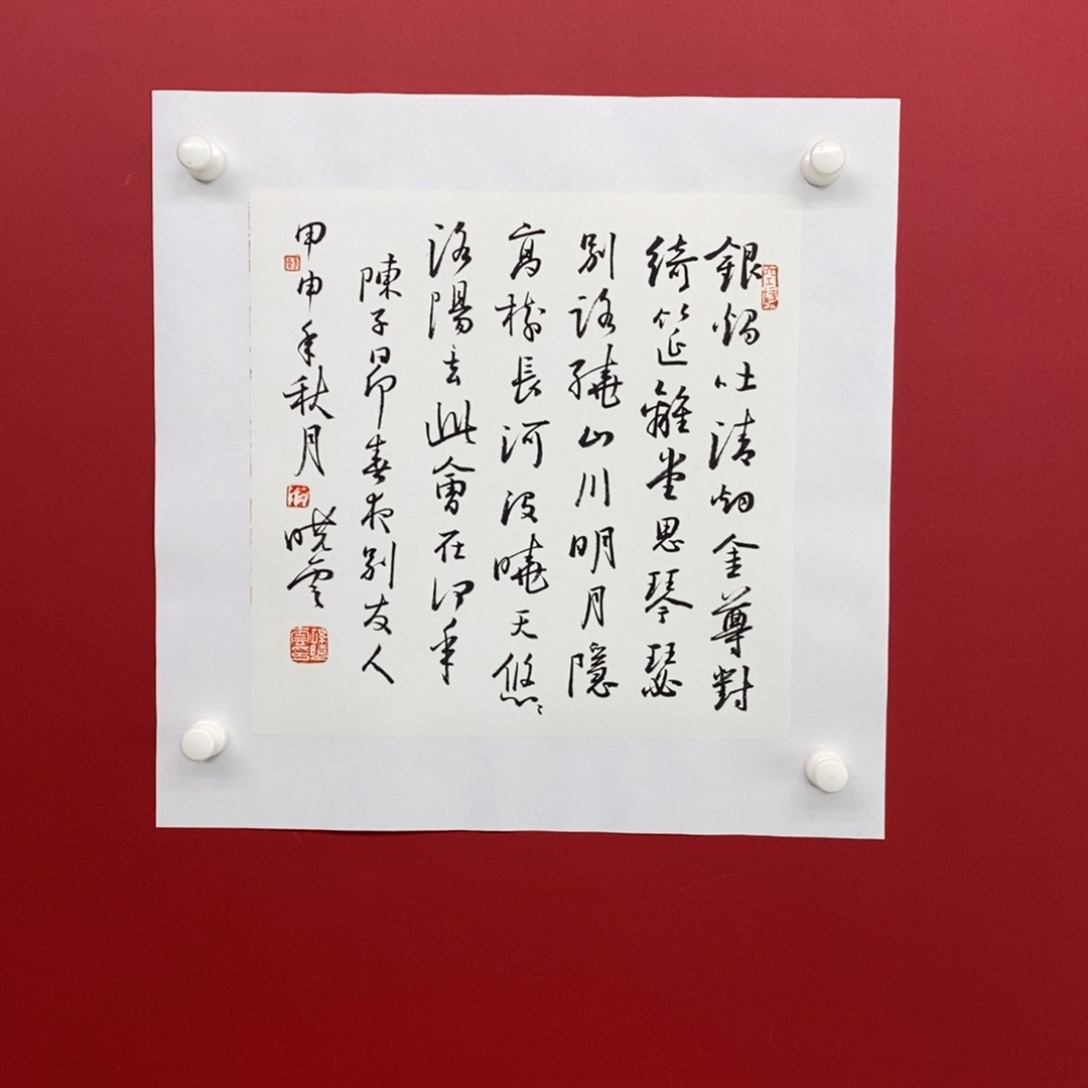 銀燭吐清烟金尊對
綺筵離堂思琴瑟
別路繞山川明月隱
高樹長河沒曉天悠〻
洛陽去此會在何年
陳子昂春夜別友人
甲申年秋月
曉雲